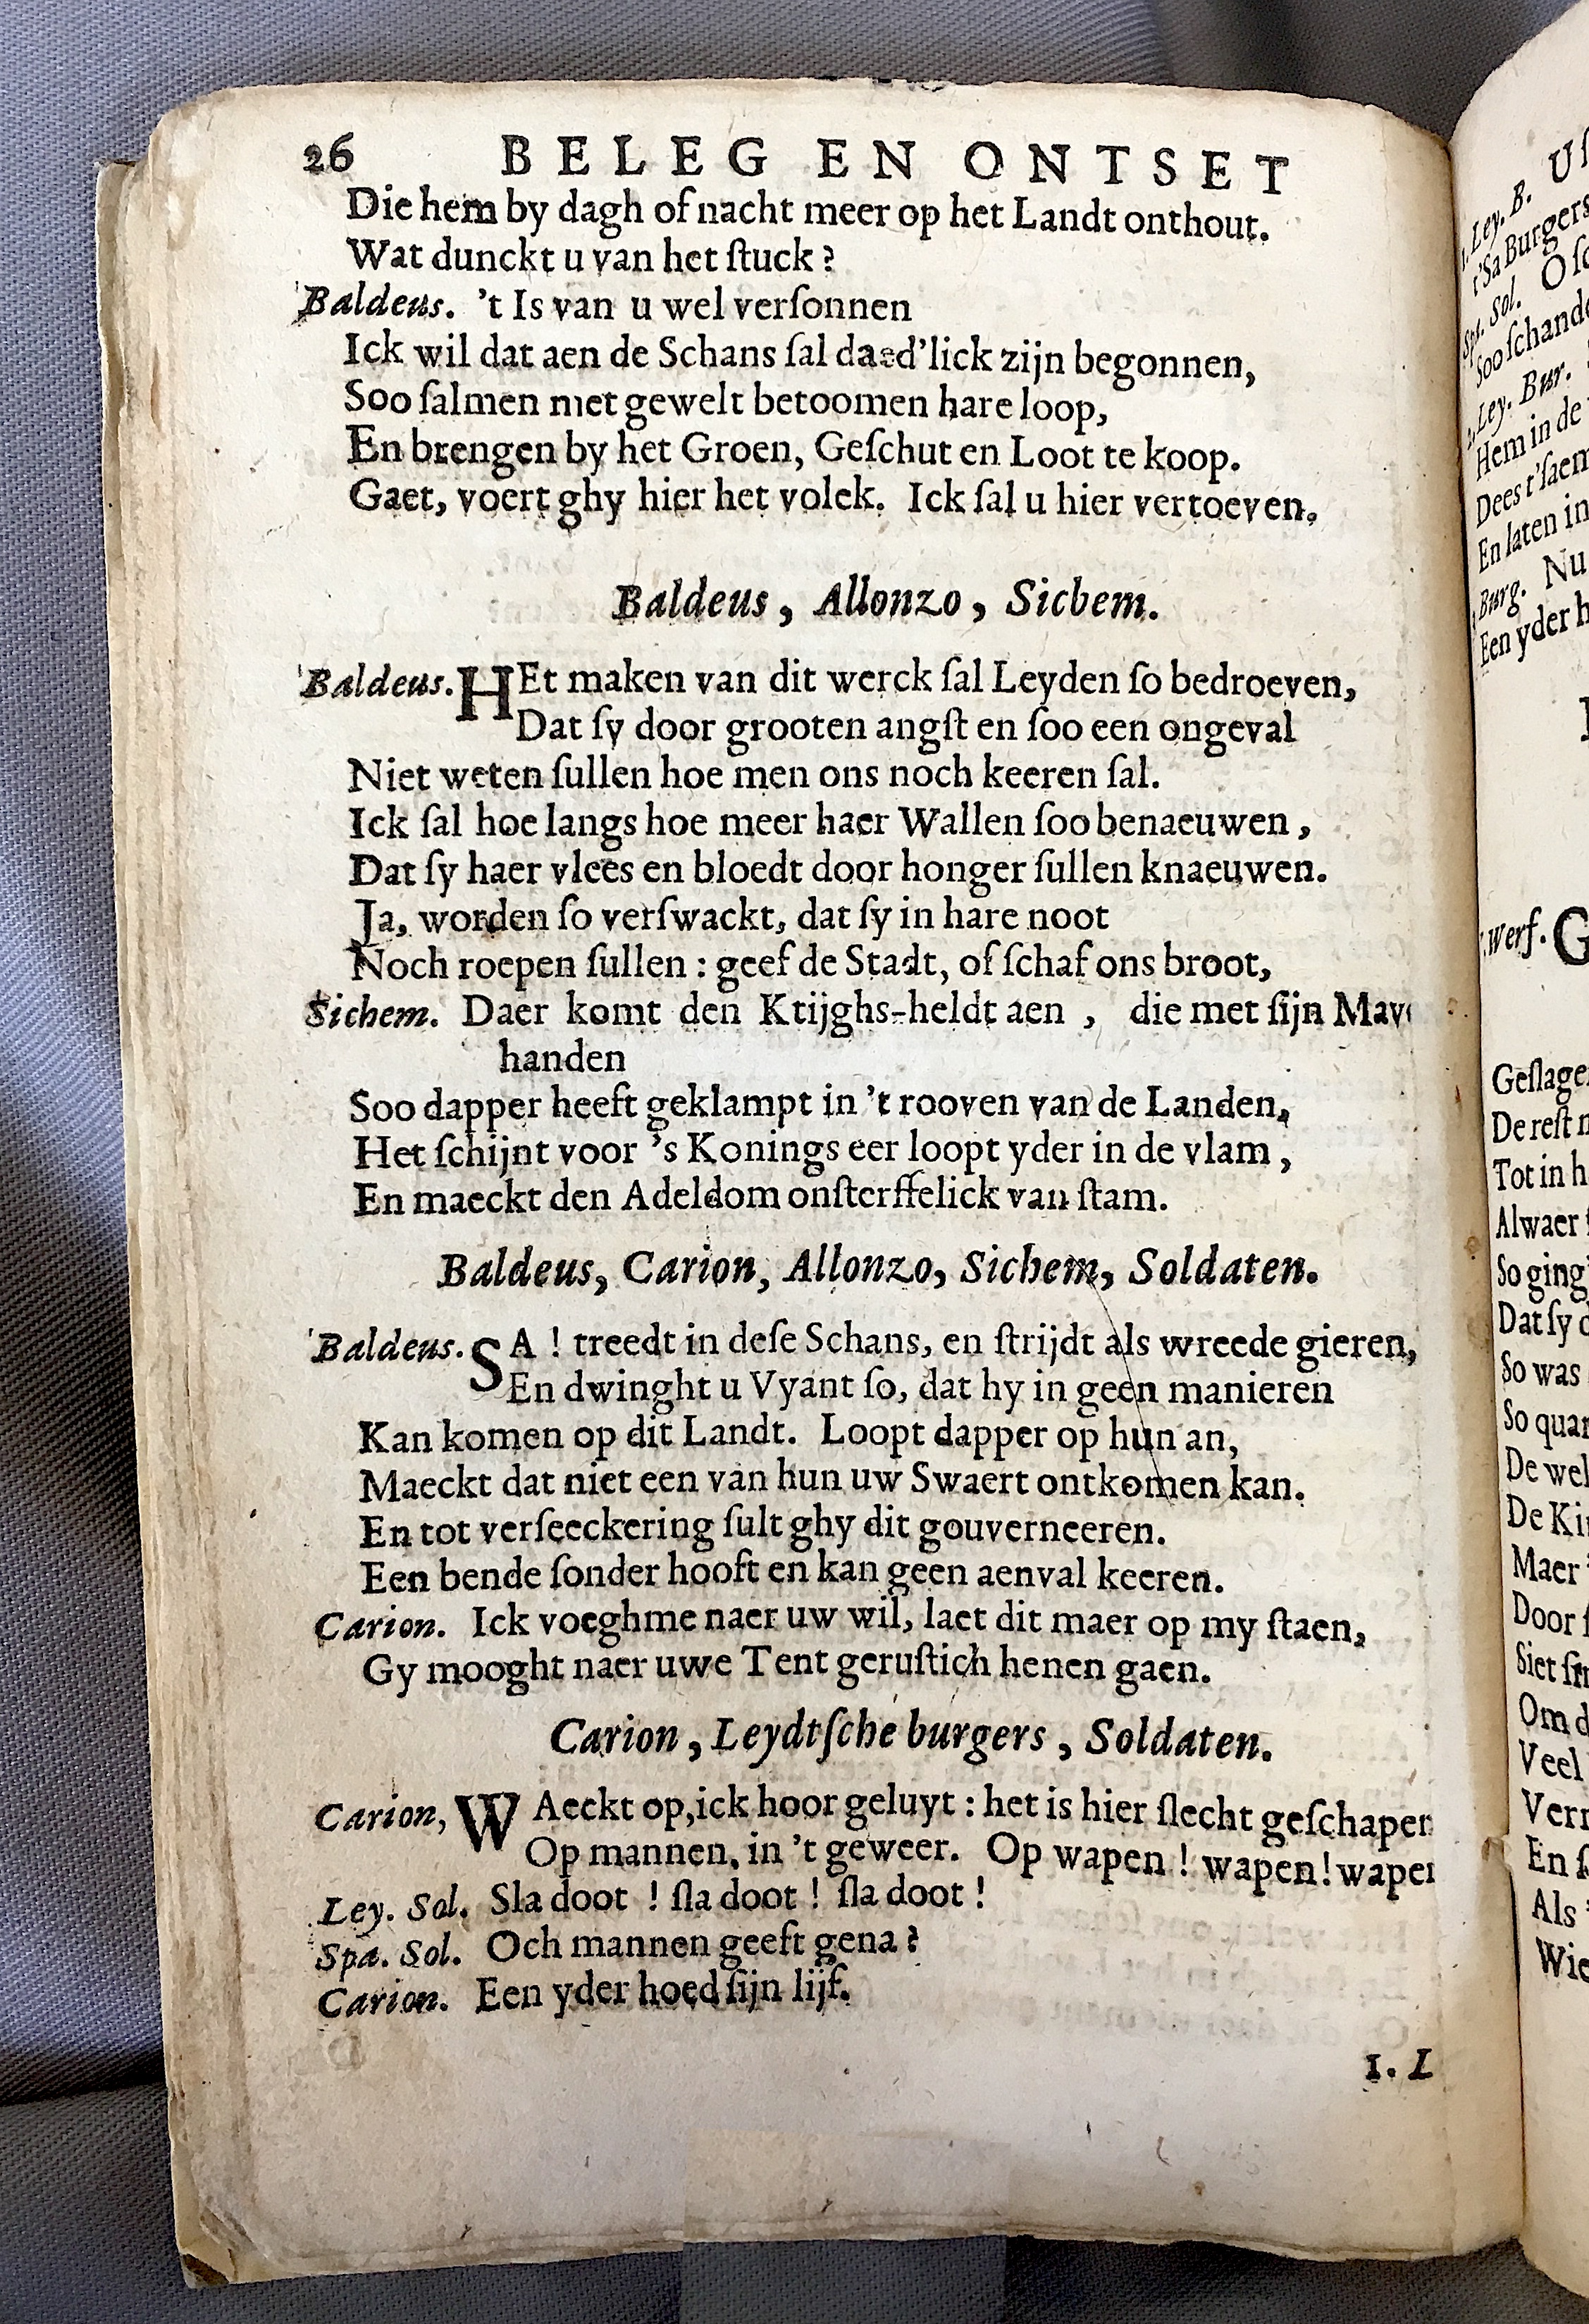 26 BELEG EN ONTSET
Die hem by dagh of nacht meer op het Landt onthout.
Wat dunckt u van het ſtuck?
Baldeus. 't Is van u wel verſonnen
Ick wil dat aen de Schans ſal daed'lick zijn begonnen,
Soo ſalmen met gewelt betoomen hare loop,
En brengen by het Groen, Geſchut en Loot te koop.
Gaet, voert ghy hier het volck. Ick ſal u hier vertoeven.
Baldeus, Allonzo, Sichem.
Baldeus. HEt maken van dit werck ſal Leyden ſo bedroeven,
Dat ſy door grooten angſt en ſoo een ongeval
Niet weten ſullen hoe men ons noch keeren ſal.
Ick ſal hoe langs hoe meer haer Wallen ſoo benaeuwen,
Dat ſy haer vlees en bloedt door honger ſullen knaeuwen.
Ja, worden ſo verſwackt, dat ſy in hare noot
Noch roepen ſullen: geef de Stadt, of ſchaf ons broot,
Sichem. Daer komt den Ktijghs-heldt aen, die met ſijn Mav
handen
Soo dapper heeft geklampt in 't rooven van de Landen,
Het ſchijnt voor 's Konings eer loopt yder in de vlam,
En maeckt den Adeldom onſterffelick van ſtam.
Baldeus, Carion, Allonzo, Sichem, Soldaten.
Baldeus. SA! treedt in deſe Schans, en ſtrijdt als wreede gieren,
En dwinght u Vyant ſo, dat hy in geen manieren
Kan komen op dit Landt. Loopt dapper op hun an,
Maeckt dat niet een van hun uw Swaert ontkomen kan.
En tot verſeeckering ſult ghy dit gouverneeren.
Een bende ſonder hooft en kan geen aenval keeren.
Carion. Ick voeghme naer uw wil, laet dit maer op my ſtaen,
Gy mooght naer uwe Tent geruſtich henen gaen.
Carion, Leydtſche burgers, Soldaten.
Carion, WAeckt op, ick hoor geluyt: het is hier ſlecht geſchapen
Op mannen, in 't geweer. Op wapen! wapen! wapen
Ley. Sol. Sla doot! ſla doot! ſla doot!
Spa. Sol. Och mannen geeft gena?
Carion. Een yder hoed ſijn lijf.
1. L
1. Ley. B.
t'Sa Burgers
Spa. Sol. O
Soo ſchande
2. Ley. Bur.
Hem in de
Dees t'ſaem
En laten in
Burg. Nu
Een yder h
Werf. G
Geſlage
De reſt
Tot in h
Alwaer
So ging
Dat ſy
So was
So quam
De wel
De Kin
Maer
Door
Siet
Om d
Veel
Verr
En
Als
Wie